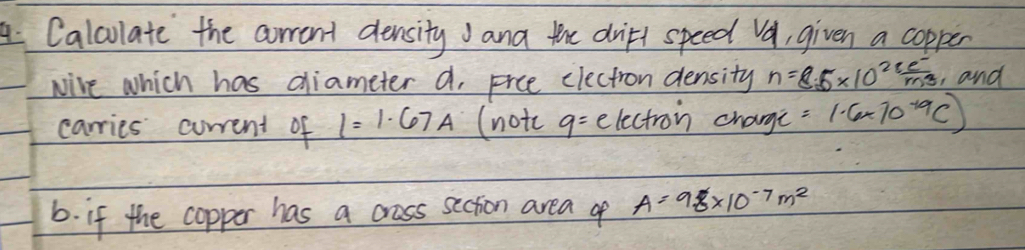 4. Calculate the current density J and the drift speed Vd, given a copper
wire which has diameter d, free electron density n=8.5×10²⁸ e⁻/m³, and
carries current of I = 1.67A (note q = electron charge = 1.6×10⁻¹⁹C)
b. if the copper has a cross section area of A = 9.8×10⁻⁷m²